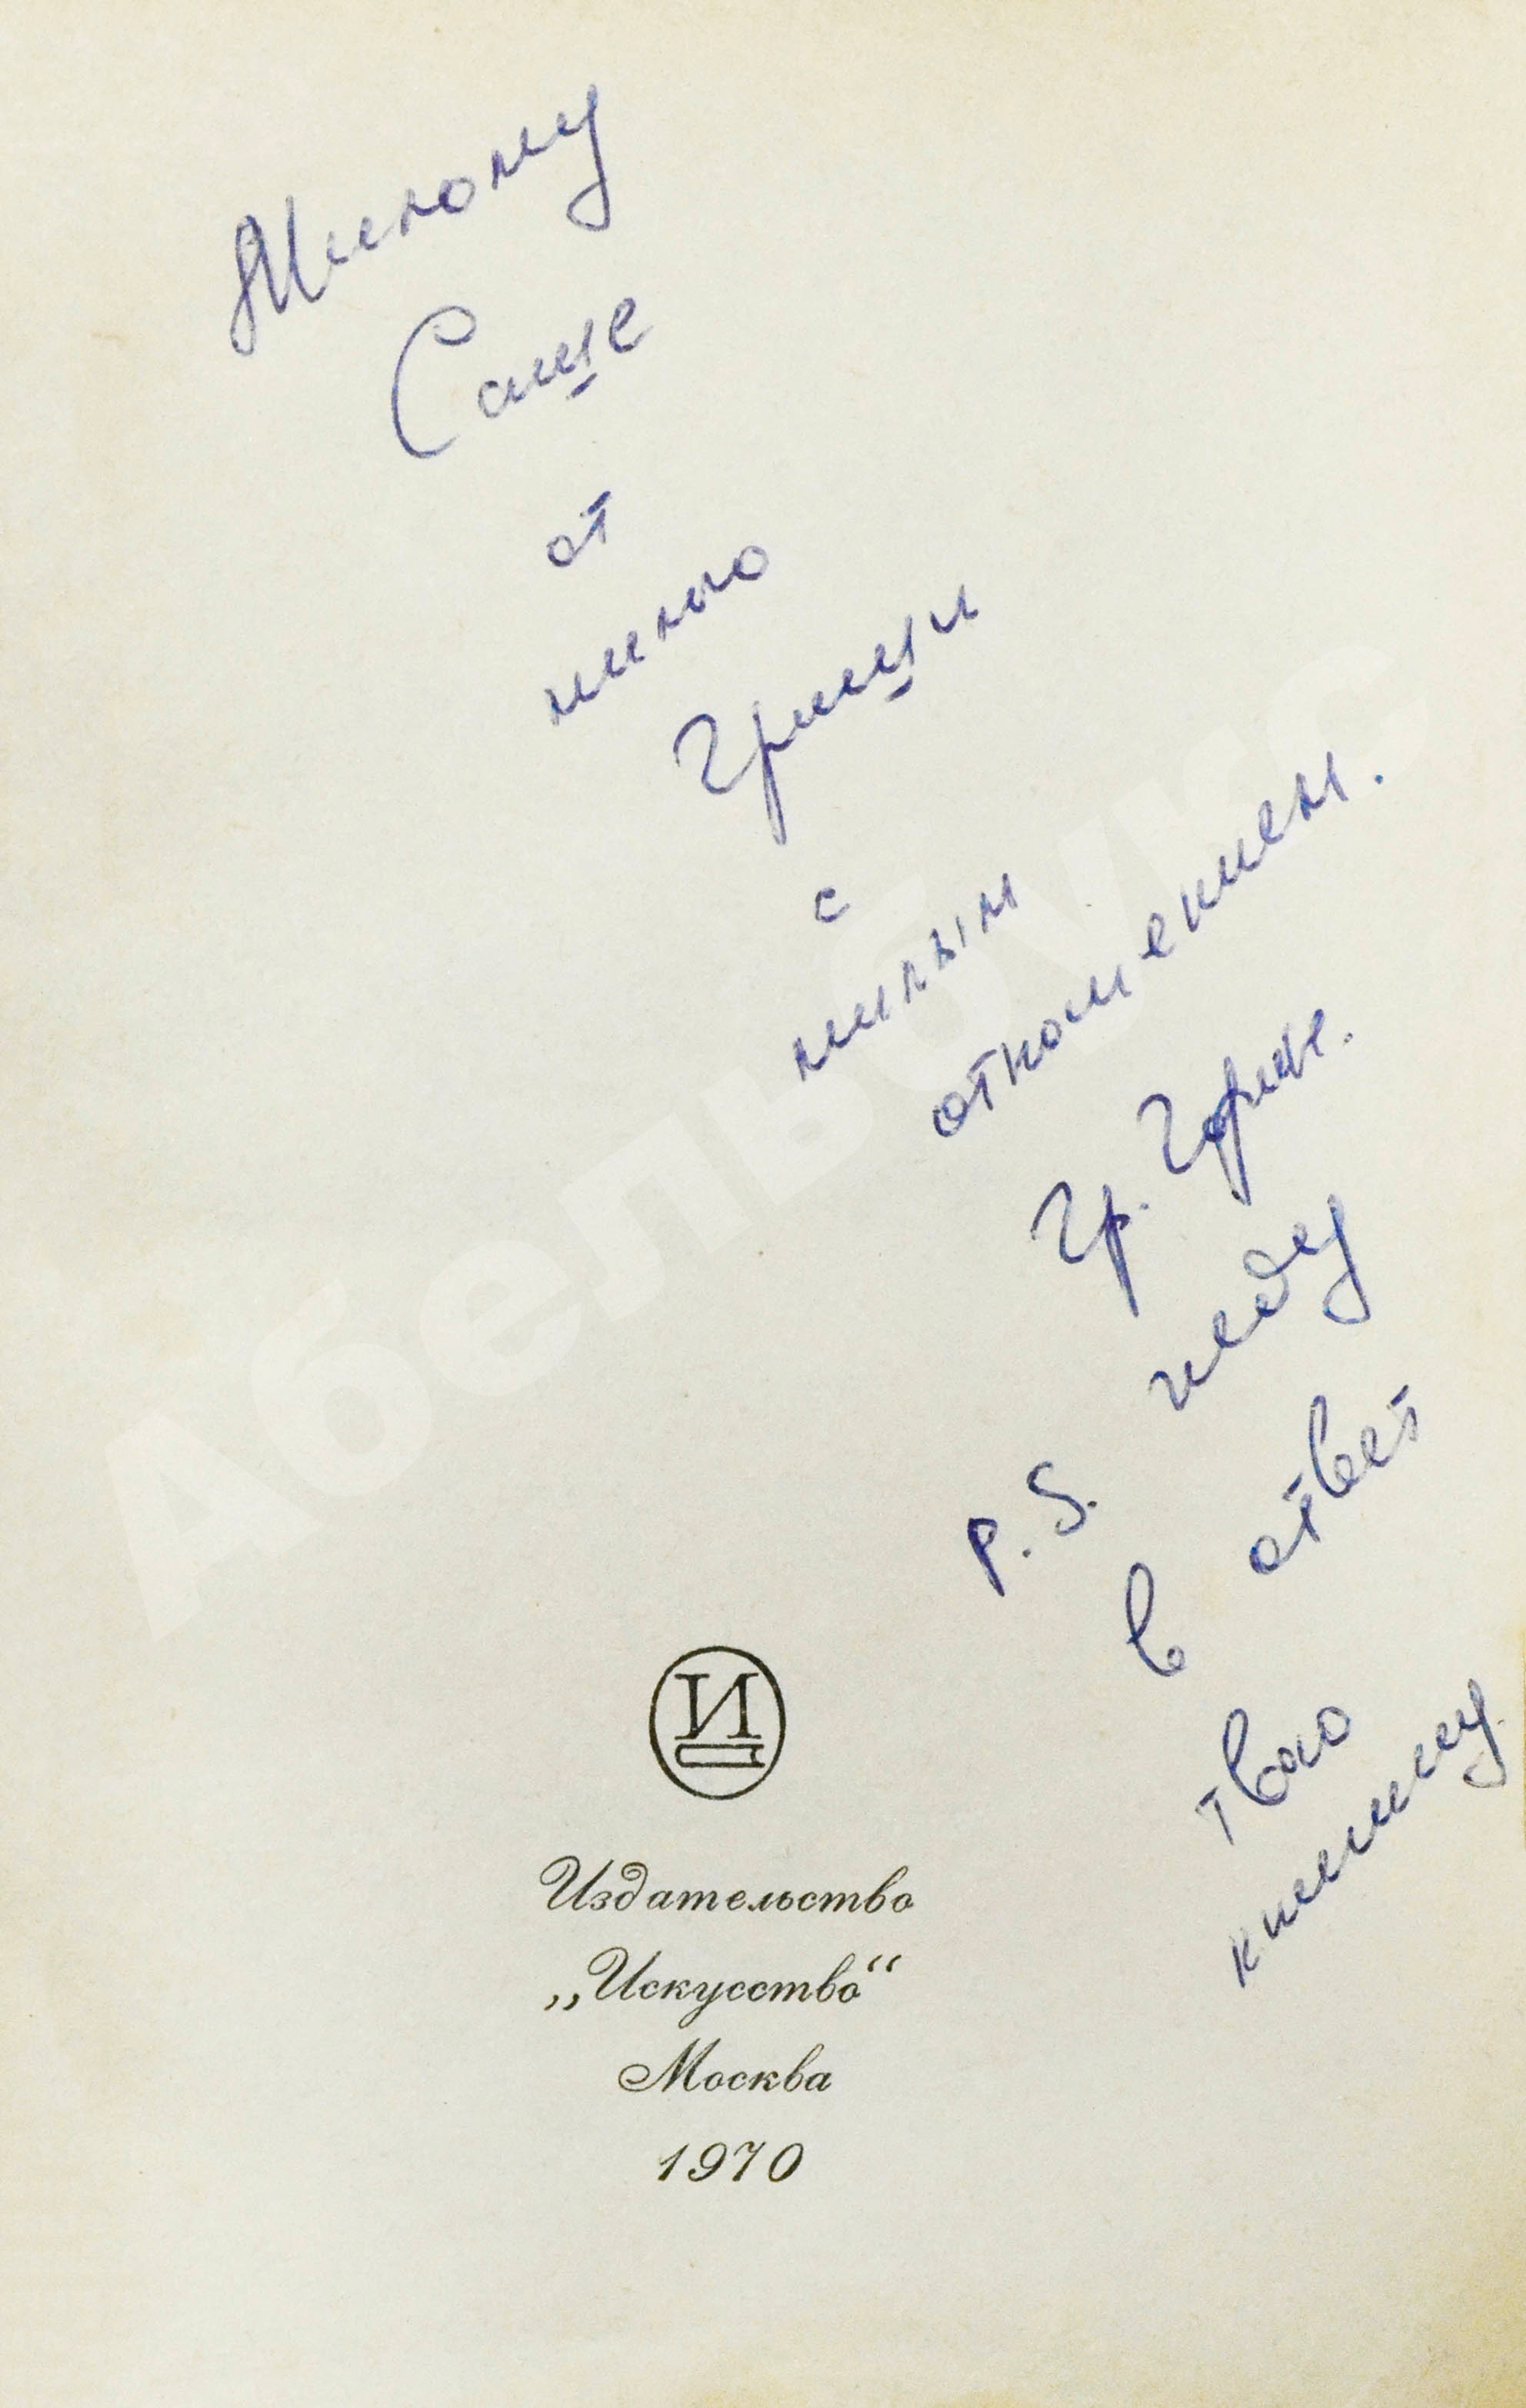 Милому
Саше
от
милого
Гриши
с
милым
отношением.
Гр. Горин.
P.S. жду
в ответ
твою
книжку.
И
Издательство
„Искусство“
Москва
1970
Абельбукс